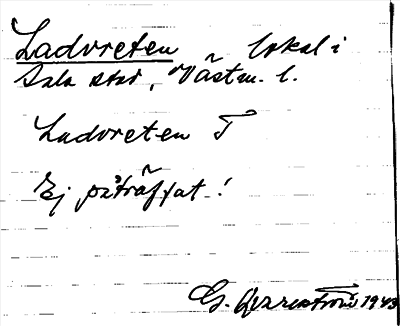 Ladvreten lokal i
Sala stad, Västm. l.
Ladvreten T
Ej påträffat!
G. 1943